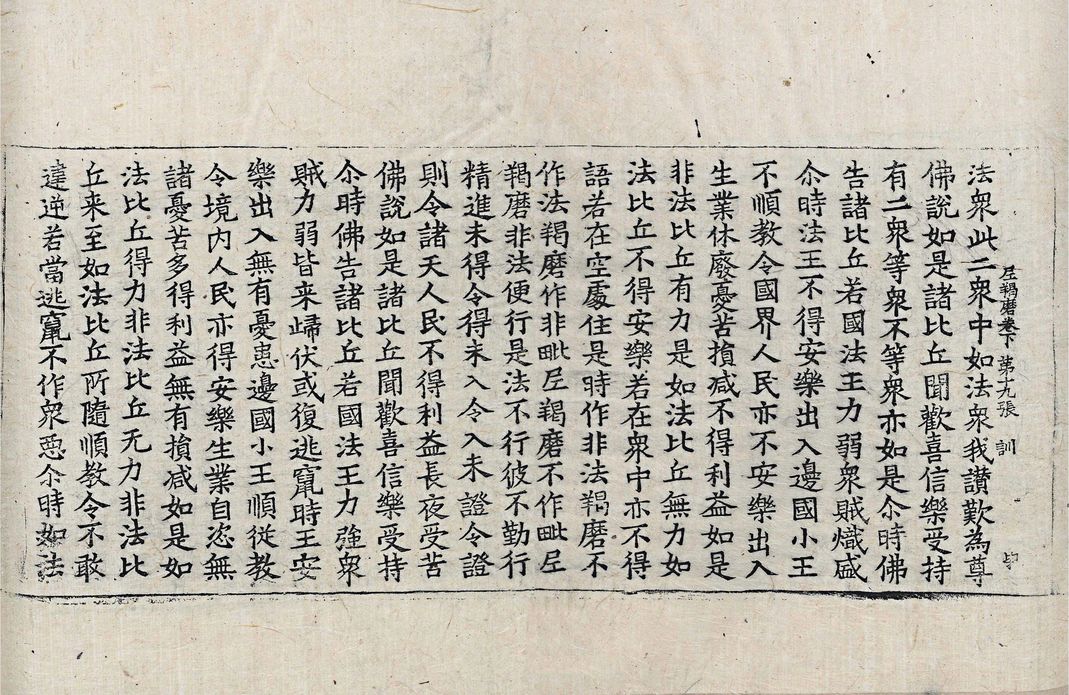 尼羯磨卷下 第十九張 訓
法衆此二衆中如法衆我讃歎為尊
佛說如是諸比丘聞歡喜信樂受持
有二衆等衆不等衆亦如是尒時佛
告諸比丘若國法王力弱衆賊熾盛
尒時法王不得安樂出入邊國小王
不順教令國界人民亦不安樂出入
生業休廢憂苦損减不得利益如是
非法比丘有力是如法比丘無力如
法比丘不得安樂若在衆中亦不得
語若在空處住是時作非法羯磨不
作法羯磨作非毗尼羯磨不作毗尼
羯磨非法便行是法不行彼不勤行
精進未得令得未入令入未證令證
則令諸天人民不得利益長夜受苦
佛說如是諸比丘聞歡喜信樂受持
尒時佛告諸比丘若國法王力強衆
賊力弱皆来歸伏或復逃竄時王安
樂出入無有憂患邊國小王順従教
令境内人民亦得安樂生業自恣無
諸憂苦多得利益無有損减如是如
法比丘得力非法比丘无力非法比
丘来至如法比丘所隨順教令不敢
違逆若當逃竄不作衆惡尒時如法